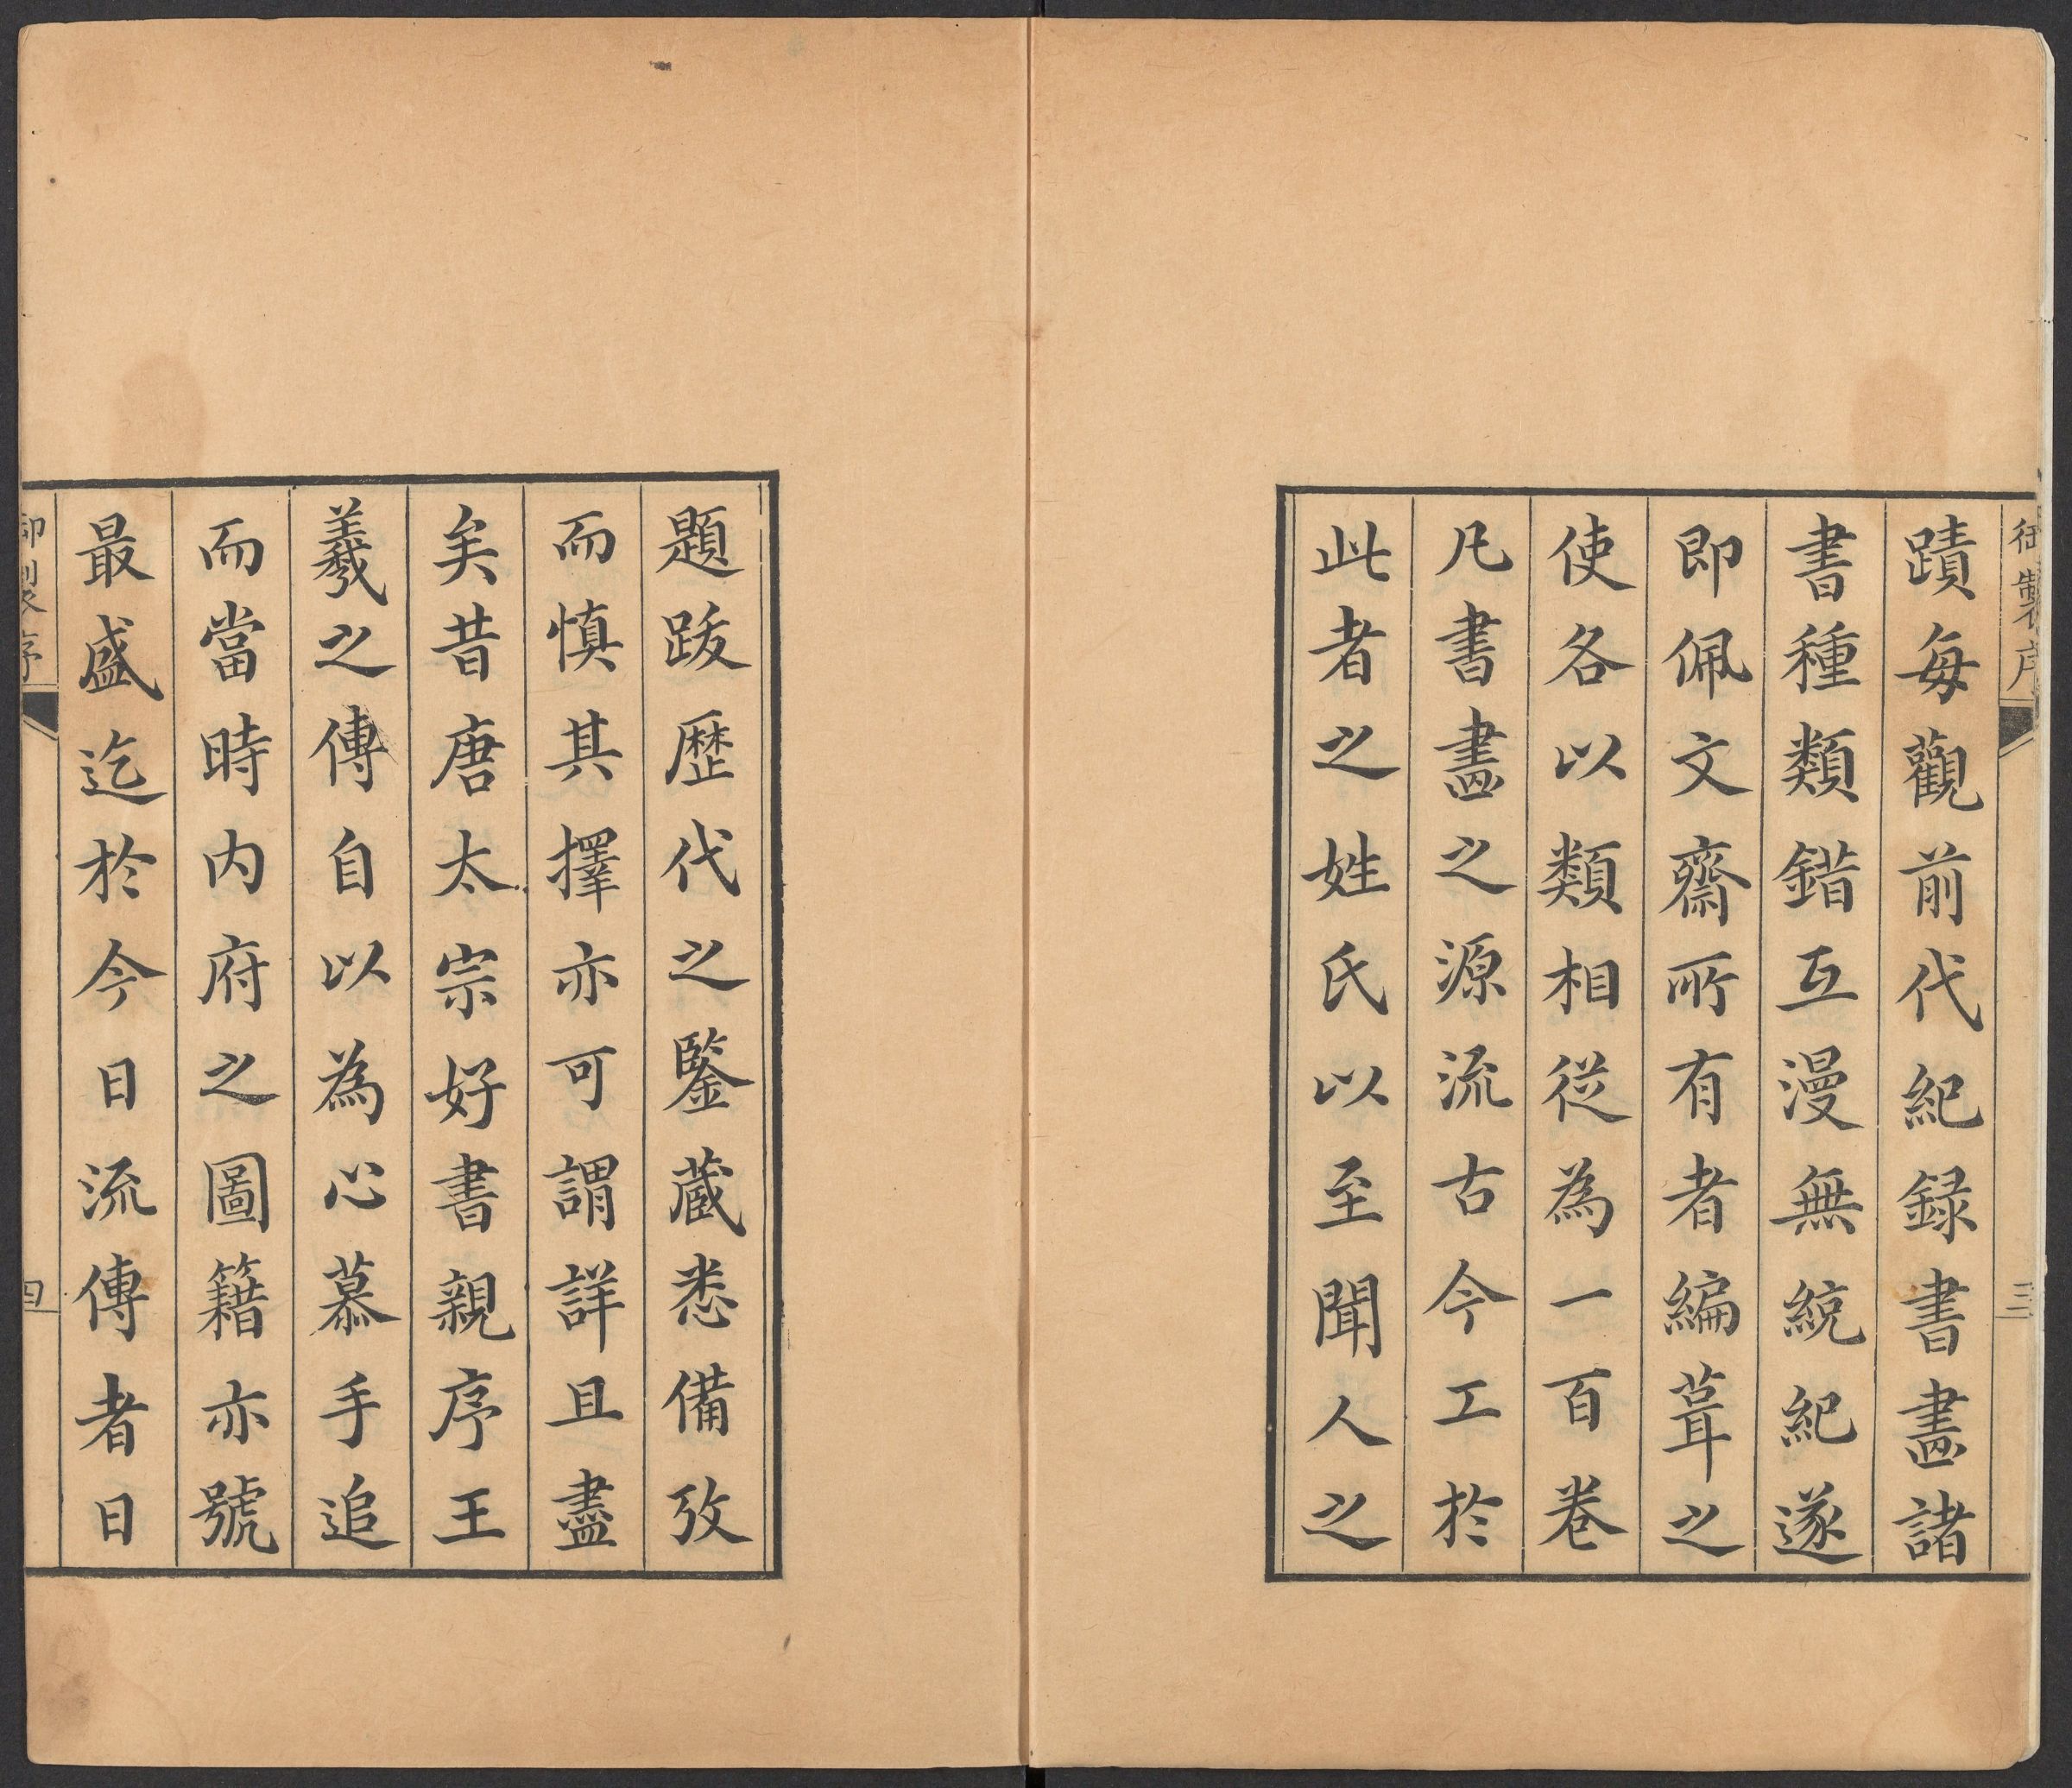 御製序
三
蹟每觀前代紀録書畫諸
書種類錯互漫無統紀遂
即佩文齋所有者編葺之
使各以類相從為一百卷
凡書畫之源流古今工於
此者之姓氏以至聞人之
題跋歷代之鑒藏悉備攷
而慎其擇亦可謂詳且盡
矣昔唐太宗好書親序王
羲之傳自以為心慕手追
而當時内府之圖籍亦號
最盛迄於今日流傳者日
御製序
四